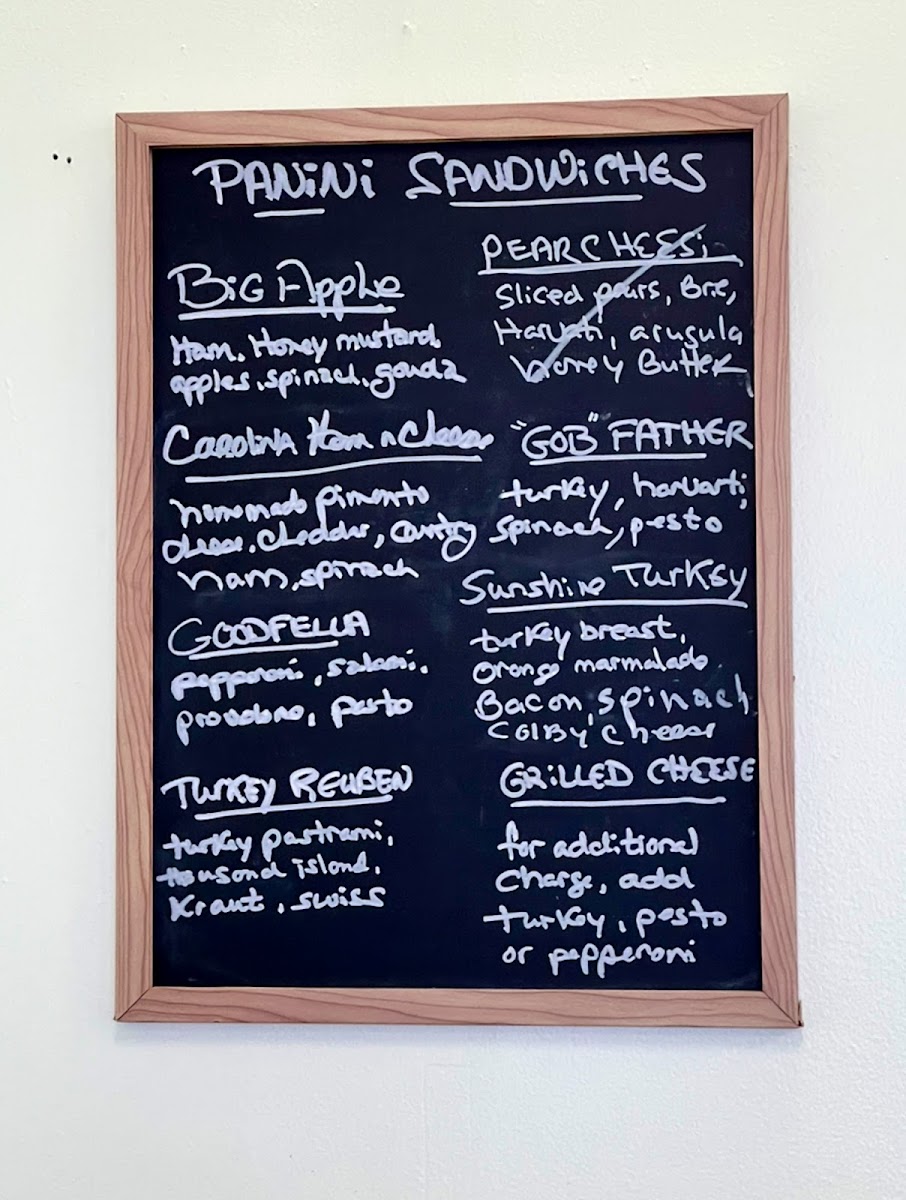 PANiNi SANDWiCHES
BiG Apple
Ham, Honey mustard
apples, spinach, gouda
CAROLINA Ham n Cheese
homemade pimento
cheese, cheddar, country
ham, spinach
GOODFELLA
pepperoni, salami,
provolone, pesto
TURKEY REUBEN
turkey pastrami,
thousand island,
Kraut, swiss
PEAR CHEESi
Sliced pears, Brie,
Havarti, arugula
honey Butter
"GOB" FATHER
turkey, havarti,
spinach, pesto
Sunshine TURKEY
turkey breast,
orange marmalade
Bacon, spinach
COLBY cheese
GRiLLED CHEESE
for additional
charge, add
turkey, pesto
or pepperoni